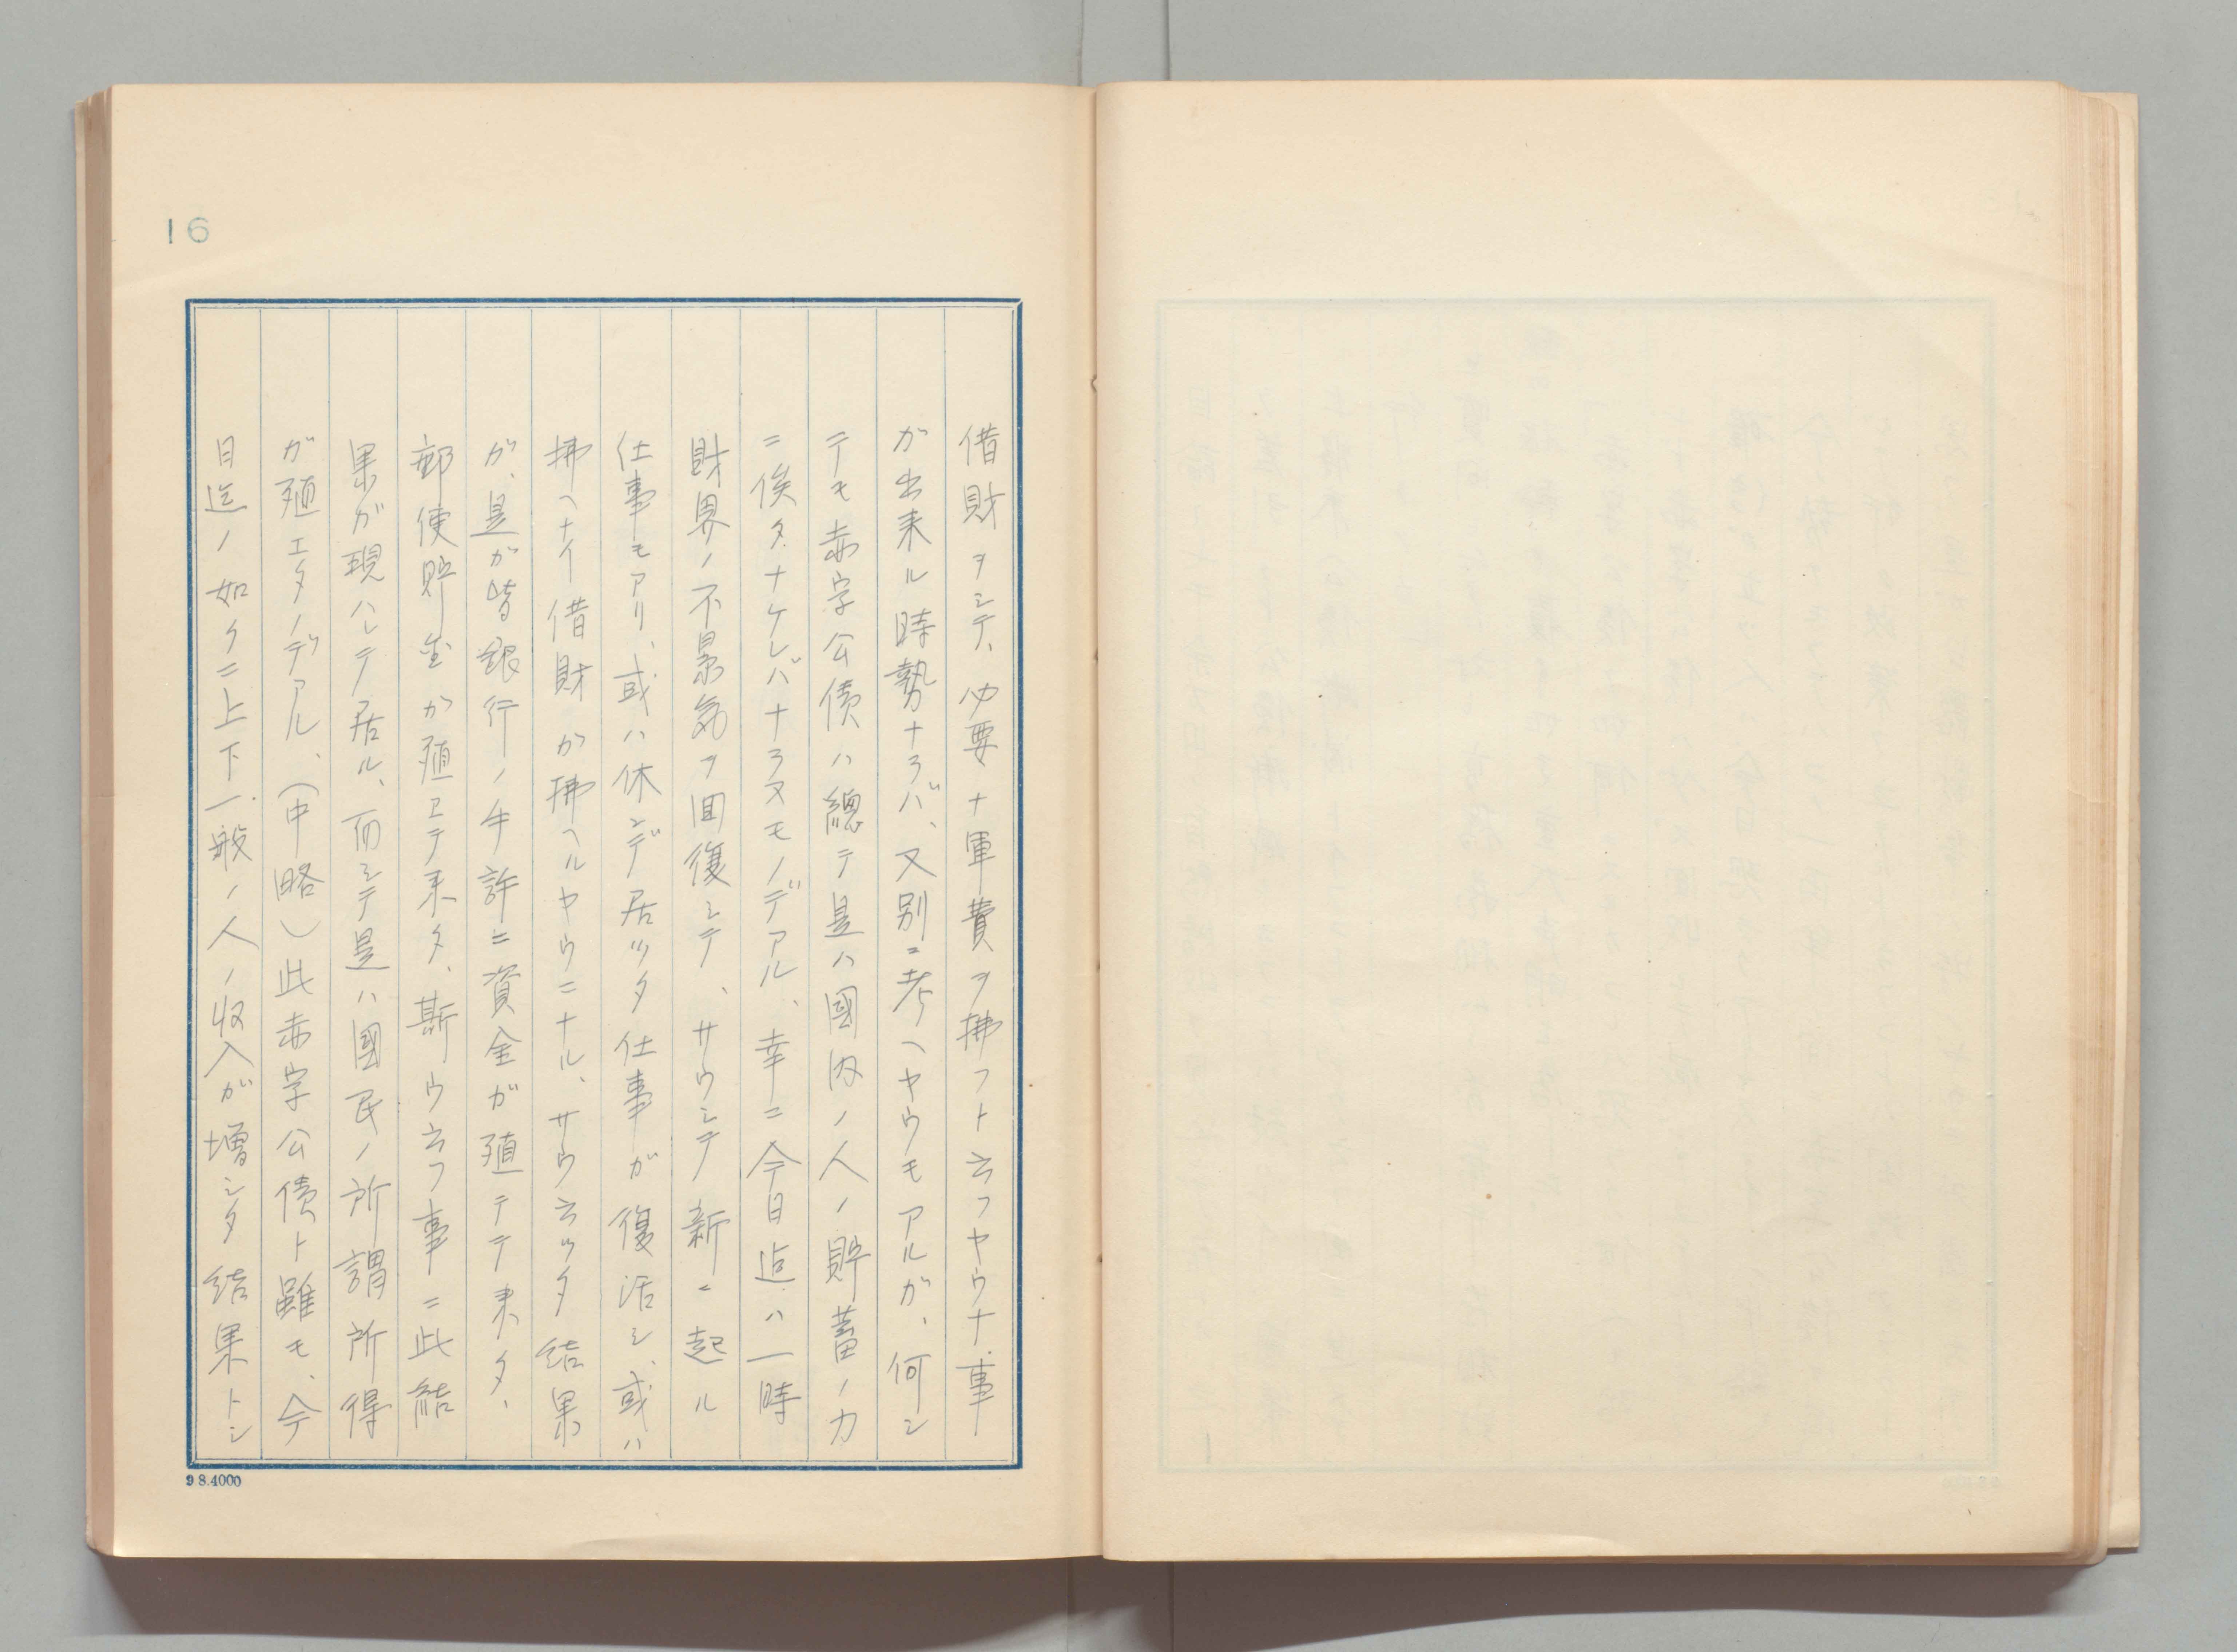 16
借財ヲシテ、必要ナ軍費ヲ拂フト云フヤウナ事
が出来ル時勢ナラバ、又別ニ考ヘヤウモアルガ、何シ
テモ赤字公債ハ總テ是ハ國内ノ人ノ貯蓄ノ力
ニ俟タナケレバナラヌモノデアル、幸ニ今日迄ハ一時
財界ノ不景気ヲ回復シテ、サウシテ新ニ起ル
仕事モアリ、或ハ休ンデ居ツタ仕事ガ復活シ、或ハ
拂ヘナイ借財ガ拂ヘルヤウニナル、サウ云ッタ結果
ガ、是ガ皆銀行ノ手許ニ資金ガ殖テテ来タ、
郵便貯金ガ殖エテ来タ、斯ウ云フ事ニ此結
果ガ現ハレテ居ル、而シテ是ハ國民ノ所謂所得
ガ殖エタノデアル、（中略）此赤字公債ト雖モ、今
日迄ノ如クニ上下一般ノ人ノ収入ガ増シタ結果トシ
9 8.4000